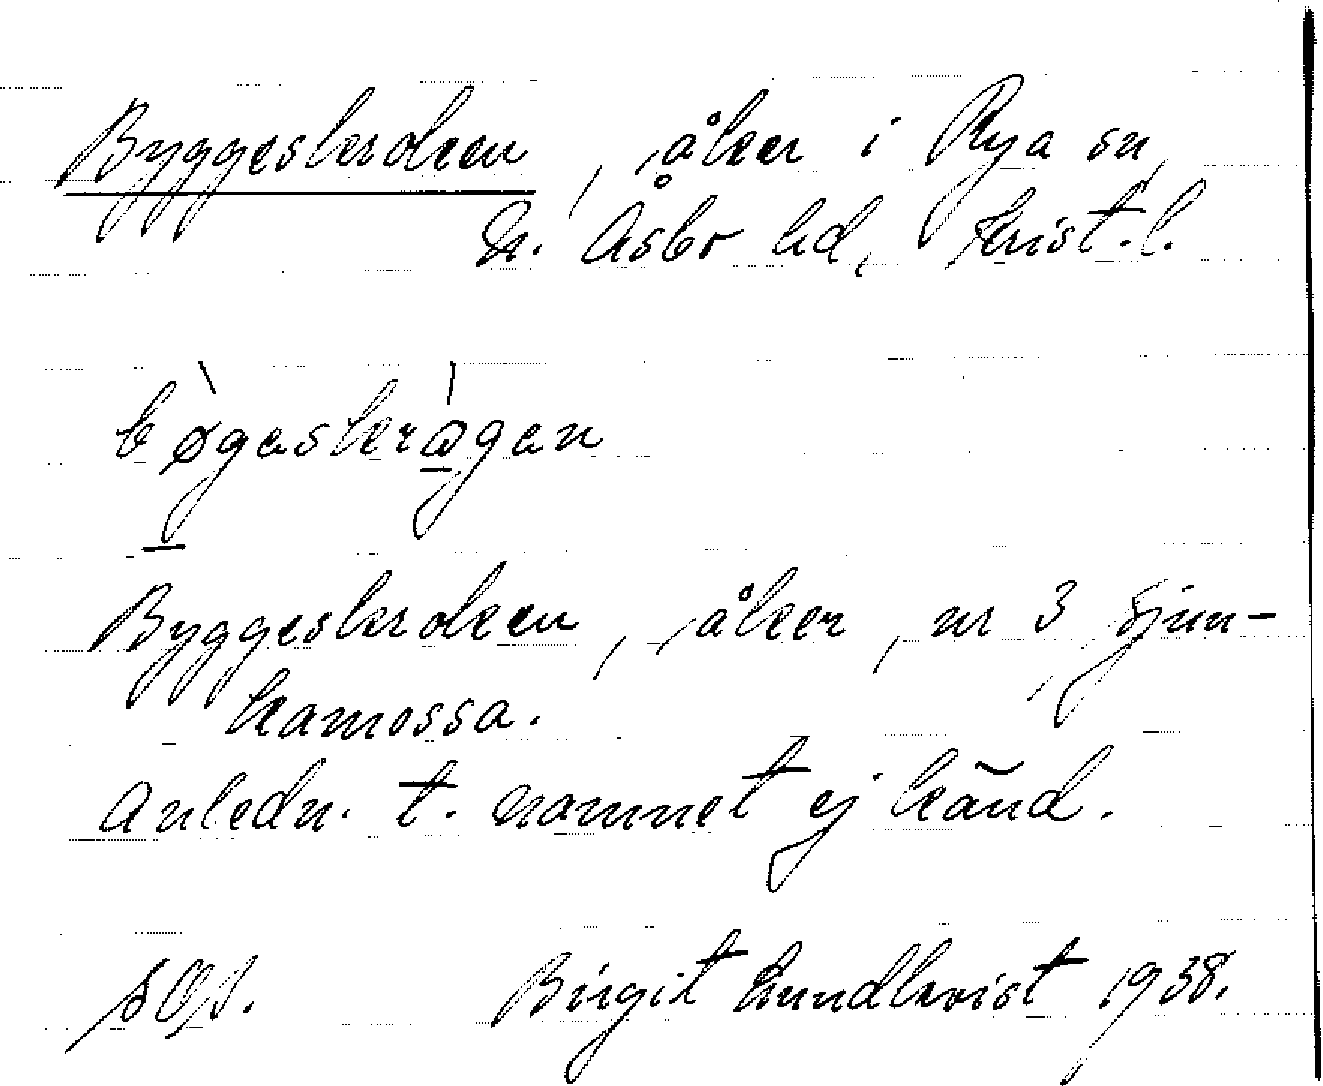 Byggeskroken, åker i Rya sn,
N. Åsbo hd, Krist. l.
bøgaskrǫ̀gan
Byggeskroken, åker, nr 3 Sjun-
kamossa.
Anledn. t. namnet ej känd.
SOf. Birgit Lundkvist 1938.